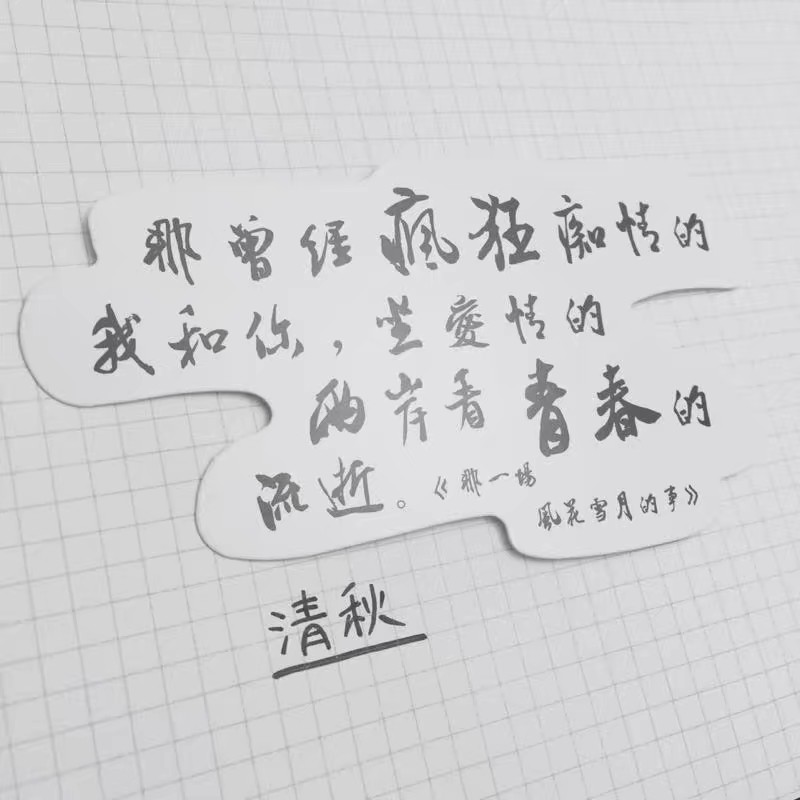 那曾经瘋狂痴情的
我和你，坐愛情的
两岸看青春的
流逝。《那一場
風花雪月的事》
清秋